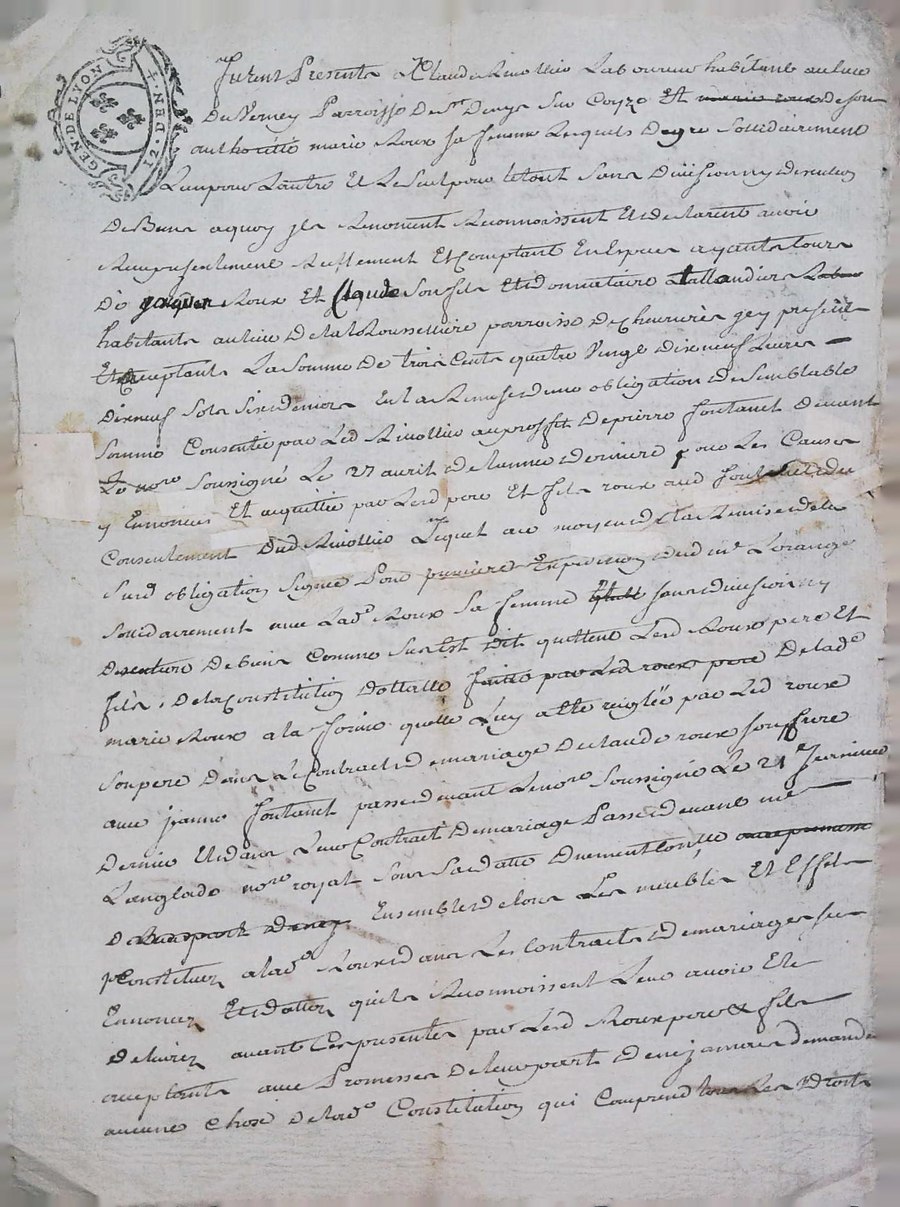 GEN·DE LYON 12·DEN·
furent Presents Claude Rivollier Laboureur habitant au lieu
Du Verney Parroisse De St Denys Sur Coyze Et marie roux de son
authoritté marie Roux sa femme Lesquels De gré Sollidairement
L'un pour L'autre Et Le Seul pour letout Sans Division ny Discution
De Biens aquoy jls Renoncent Reconnoissent Et declarent avoir
Receu presentement Reellement Et Comptant En Espèces ayants Cours
De jacques Roux Et Claude Son fils Et donnataire
habitants au lieu De la Rousselliere parroisse De Chevrières jcy presents
Et acceptants La Somme De trois Cents quatre Vingt Dixneuf Livres
Dixneuf Sols Six deniers En la Remise d'une obligation De Semblable
Somme Consentie par Led Rivollier au proffit De pierre fontanet Devant
Le nore Soussigné Le 27 avril De L'année Derniere pour Les Causes
y Ennoncées Et acquittée par Lesd pere Et fils roux aud fontanet du
Consentement Dud Rivollier Lequel au moyen de la Remise de la
Surd obligation Signée Pour premiere Expedition Dud me Lorange
Sollidairement avec Lade Roux Sa femme Sans division ny
Discution De biens Comme Sus Est Dit quittent Lesd Roux pere Et
fils, De la Constitution Dottalle faitte par Led roux pere De lade
marie Roux a la forme quelle Luy a Eté reiglée par Led roux
Son pere Dans Le Contract De mariage De claude roux Son frere
avec jeanne fontanet passé devant Le nore Soussigné Le 21e
Dernier Et dans Leur Contract De mariage Passé devant me
L'anglade nore royal Sous Sa datte Duement Conllé
De Ensemble de tous Les meubles Et Effets
Constitués a lade Roux dans Les Contracts De mariages Sus
Ennoncés Et dattés quils Reconnoissent Leur avoir Eté
Delivrés avant Ces presentes par Lesd Roux pere & fils
acceptants avec Promesses De leur part De ne jamais demander
aucune Chose De lade Constitution qui Comprend tous Les Droits